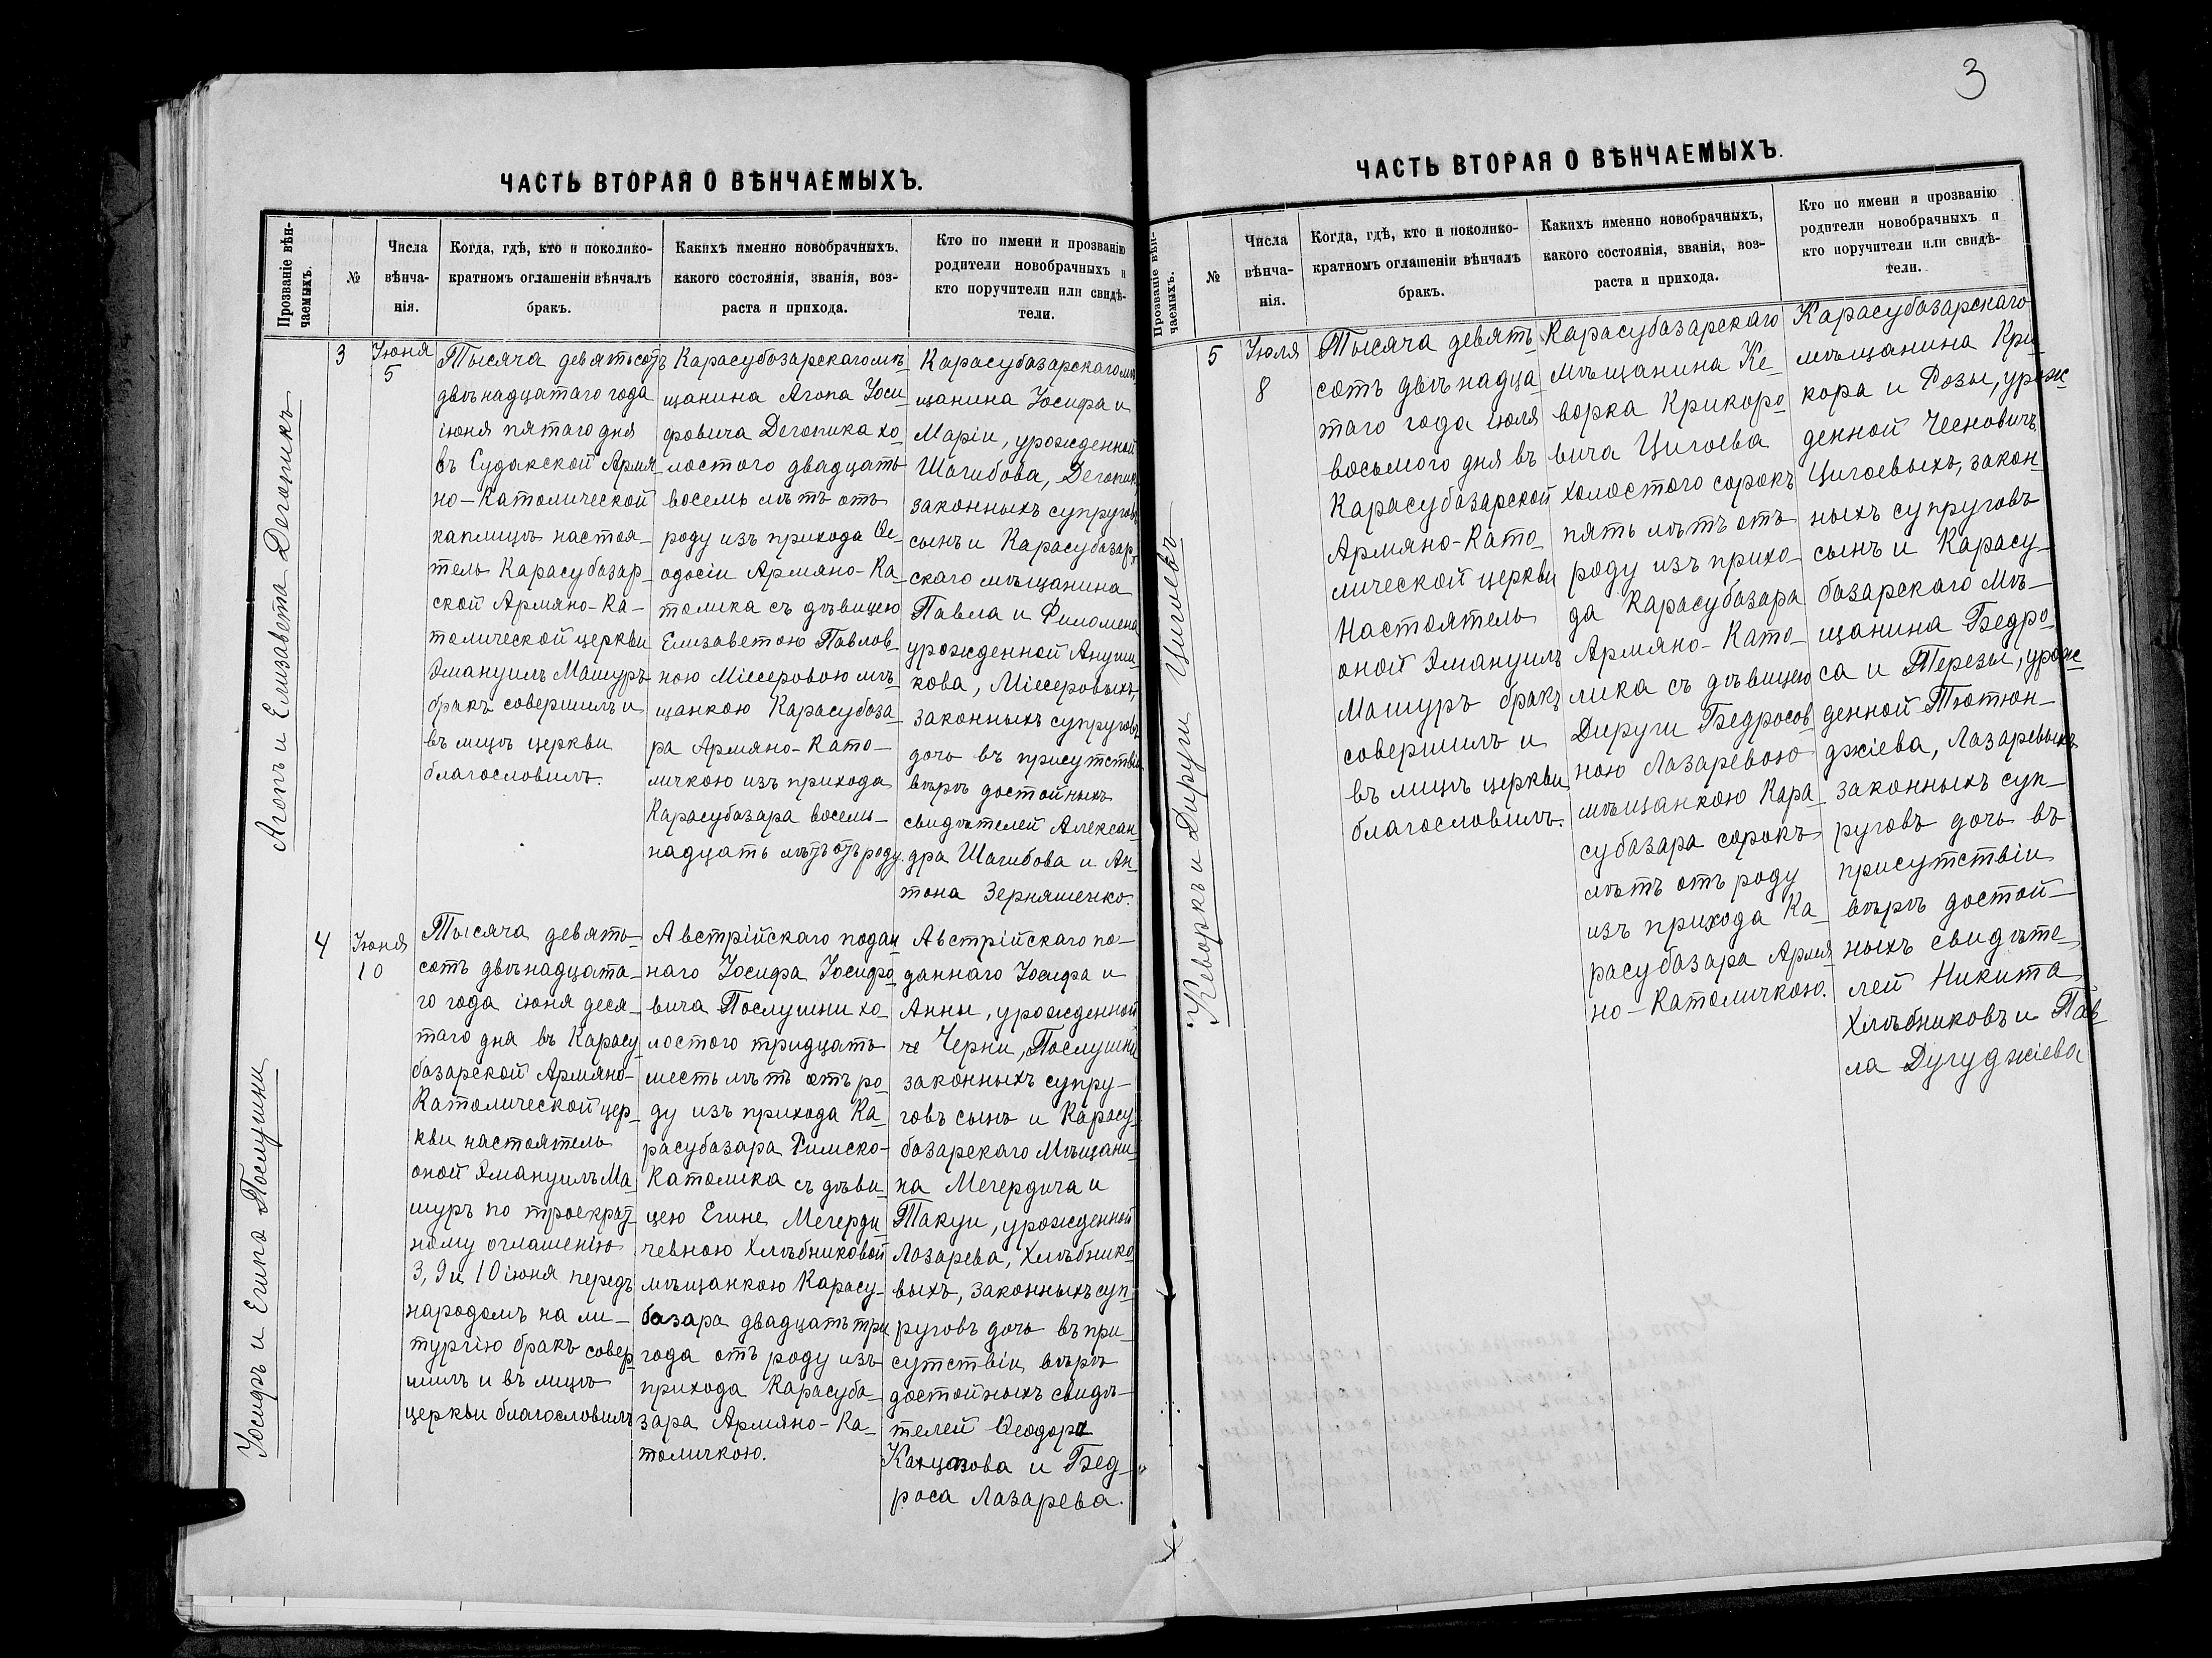 3
ЧАСТЬ ВТОРАЯ О ВѢНЧАЕМЫХЪ.
Прозваніе вѣн-
чаемыхъ.
№
Числа
вѣнча-
нія.
Когда, гдѣ, кто и поколико-
кратномъ оглашеніи вѣнчалъ
бракъ.
Какихъ именно новобрачныхъ,
какого состоянія, званія, воз-
раста и прихода.
Кто по имени и прозванію
родители новобрачныхъ и
кто поручители или свидѣ-
тели.
Агопъ и Елизавета Дегопикъ
3
Іюня
5
Тысяча девятьсотъ
двѣнадцатаго года
іюня пятаго дня
въ Судакской Армя-
но-Католической
каплицѣ настоя-
тель Карасубазар-
ской Армяно-Ка-
толической церкви
Эмануилъ Машуръ
бракъ совершилъ и
въ лицѣ церкви
благословилъ.
Карасубазарскаго мѣ-
щанина Агопа Іоси-
фовича Дегопика хо-
лостого двадцать
восемь лѣтъ отъ
роду изъ прихода Ѳе-
одосіи Армяно-Ка-
толика съ дѣвицею
Елизаветою Павлов-
ною Міссеровою мѣ-
щанкою Карасубаза-
ра Армяно-Като-
личкою изъ прихода
Карасубазара восемь-
надцать лѣтъ отъ роду.
Карасубазарскаго мѣ-
щанина Іосифа и
Маріи, урожденной
Шагибова, Дегопикъ,
законныхъ супруговъ
сынъ и Карасубазар-
скаго мѣщанина
Павла и Филомена
урожденной Ануш-
кова, Міссеровыхъ,
законныхъ супруговъ
дочь въ присутствіи
вѣрѣ достойныхъ
свидѣтелей Алексан-
дра Шагибова и Ан-
тона Зерняшенко.
Іосифъ и Егина Послушни
4
Іюня
10
Тысяча девять-
сотъ двѣнадцата-
го года іюня деся-
таго дня въ Карасу-
базарской Армяно-
Католической цер-
кви настоятель
оной Эмануилъ Ма-
шуръ по троекрат-
ному оглашенію
3, 9 и 10 іюня передъ
народомъ на ли-
тургію бракъ совер-
шилъ и въ лицѣ
церкви благословилъ
Австрійскаго подан-
наго Іосифа Іосифо-
вича Послушни хо-
лостого тридцать
шесть лѣтъ отъ ро-
ду изъ прихода Ка-
расубазара Римско-
Католика съ дѣви-
цею Егине Мегерди-
чевною Хлѣбниковой
мѣщанкою Карасу-
базара двадцать три
года отъ роду изъ
прихода Карасуба-
зара Армяно-Ка-
толичкою.
Австрійскаго по-
даннаго Іосифа и
Анны, урожденной
Черни, Послушни
законныхъ супру-
говъ сынъ и Карасу-
базарскаго Мѣщани-
на Мегердича и
Такуи, урожденной
Лазарева, Хлѣбнико-
выхъ, законныхъ суп-
руговъ дочь въ при-
сутствіи вѣрѣ
достойныхъ свидѣ-
телей Ѳеодора
и Бед-
роса Лазарева.
ЧАСТЬ ВТОРАЯ О ВѢНЧАЕМЫХЪ.
Прозваніе вѣн-
чаемыхъ.
№
Числа
вѣнча-
нія.
Когда, гдѣ, кто и поколико-
кратномъ оглашеніи вѣнчалъ
бракъ.
Какихъ именно новобрачныхъ,
какого состоянія, званія, воз-
раста и прихода.
Кто по имени и прозванію
родители новобрачныхъ и
кто поручители или свидѣ-
тели.
Кеворкъ и Дируги Цигоевъ
5
Іюля
8
Тысяча девять-
сотъ двѣнадца-
таго года іюля
восьмого дня въ
Карасубазарской
Армяно-Като-
лической церкви
Настоятель
оной Эмануилъ
Машуръ бракъ
совершилъ и
въ лицѣ церкви
благословилъ.
Карасубазарскаго
мѣщанина Ке-
ворка Крикоро-
вича Цигоева
холостого сорокъ
пять лѣтъ отъ
роду изъ прихо-
да Карасубазара
Армяно-Като-
лика съ дѣвицею
Дируги Бедросов-
ною Лазаревою
мѣщанкою Кара-
субазара сорокъ
лѣтъ отъ роду
изъ прихода Ка-
расубазара Армя-
но-Католичкою.
Карасубазарскаго
мѣщанина Кри-
кора и Розы, урож-
денной Чесновичъ,
Цигоевыхъ, закон-
ныхъ супруговъ
сынъ и Карасу-
базарскаго Мѣ-
щанина Бедро-
са и Терезы, урож-
денной Тютюн-
джіева, Лазаревыхъ
законныхъ суп-
руговъ дочь въ
присутствіи
вѣрѣ достой-
ныхъ свидѣте-
лей Никита
Хлѣбниковъ и Пав-
ла Дугуджіева